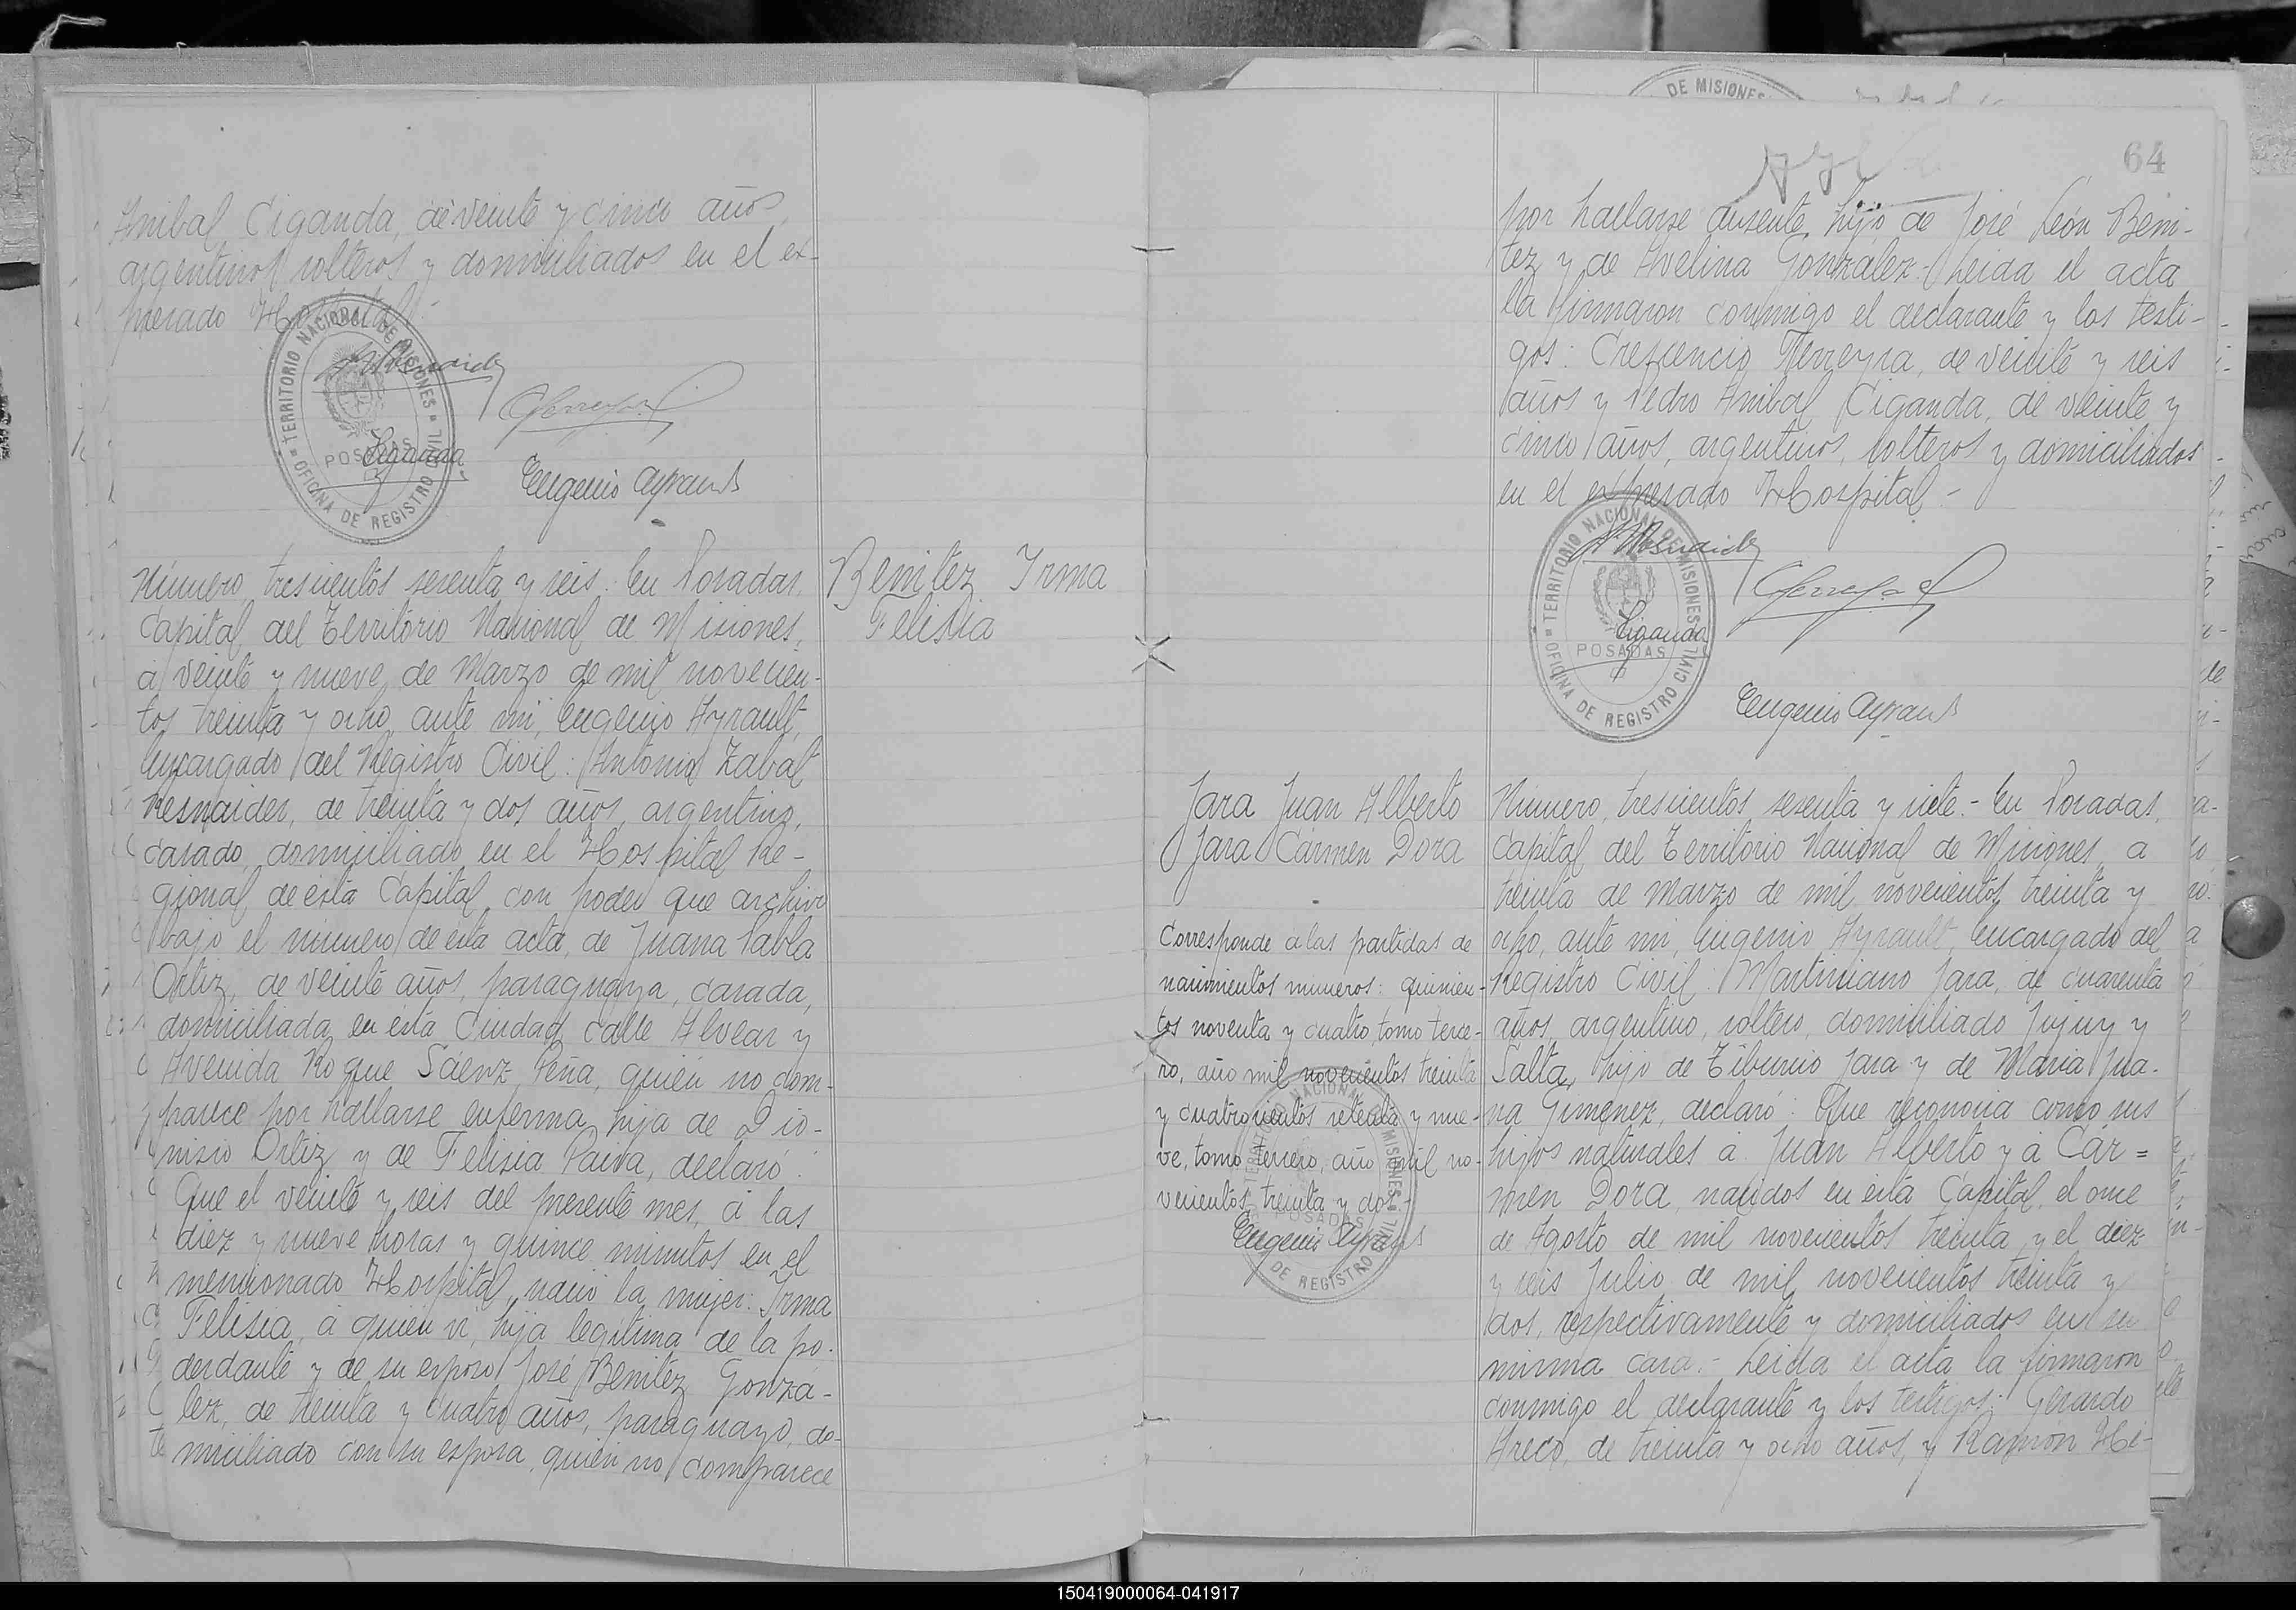 Anibal Ciganda, de veinte y cinco años,
argentinos, solteros y domiciliados en el ex-
presado Hospital.-
TERRITORIO NACIONAL DE MISIONES
POSADAS
OFICINA DE REGISTRO CIVIL
Ciganda
Eugenio Ayrault
Número trescientos sesenta y seis: En Posadas,
Capital del Territorio Nacional de Misiones,
a veinte y nueve de Marzo de mil novecien-
tos treinta y ocho, ante mi, Eugenio Ayrault,
Encargado del Registro Civil: Antonio Zabat
Resnaider, de treinta y dos años, argentino,
casado, domiciliado en el Hospital Re-
gional de ésta Capital, con poder que archivo
bajo el número de esta acta, de Juana Pabla
Ortiz, de veinte años, paraguaya, casada,
domiciliada en esta Ciudad, calle Alvear y
Avenida Roque Sáenz Peña, quién no com-
parece por hallarse enferma, hija de Dio-
nisio Ortiz y de Felisia Paiva, declaró:
Que el veinte y seis del presente mes, á las
diez y nueve horas y quince minutos en el
mencionado Hospital, nació la mujer: Irma
Felisia, á quién ví, hija legítima de la po-
derdante y de su esposo José Benitez Gonzá-
lez, de treinta y cuatro años, paraguayo, do-
miciliado con su esposa, quién no comparece
Benitez Irma
Felisia
DE MISIONES
64
por hallarse ausente, hijo de José León Beni-
tez y de Avelina González.- Leida el acta
la firmaron conmigo el declarante y los testi-
gos: Crescencio Ferreyra, de veinte y seis
años y Pedro Anibal Ciganda, de veinte y
cinco años, argentinos, solteros y domiciliados
en el expresado Hospital.-
TERRITORIO NACIONAL DE MISIONES
POSADAS
OFICINA DE REGISTRO CIVIL
Ciganda
Eugenio Ayrault
Jara Juan Alberto
Jara Cármen Dora
Corresponde a las partidas de
nacimientos números: quinien-
tos noventa y cuatro, tomo terce-
ro, año mil novecientos treinta
y cuatrocientos setenta y nue-
ve, tomo tercero, año mil no-
vecientos treinta y dos.-
Eugenio Ayrault
Número trescientos sesenta y siete.- En Posadas,
Capital del Territorio Nacional de Misiones, a
treinta de Marzo de mil novecientos treinta y
ocho, ante mi, Eugenio Ayrault, Encargado del
Registro Civil: Martiniano Jara, de cuarenta
años, argentino, soltero, domiciliado Jujuy y
Salta, hijo de Tiburcio Jara y de Maria Jua-
na Gimenez, declaró: Que reconocia como sus
hijos naturales á Juan Alberto y á Cár=
men Dora, nacidos en ésta Capital, el once
de Agosto de mil novecientos treinta y el diez
y seis Julio de mil novecientos treinta y
dos, respectivamente y domiciliados en su
misma casa.- Leida el acta la firmaron
conmigo el declarante y los testigos: Gerardo
Areco, de treinta y ocho años, y Ramón He-
150419000064-041917